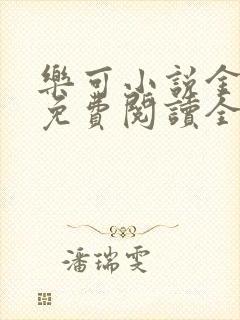 樂可小說全
免費閱讀全
潘瑞雯